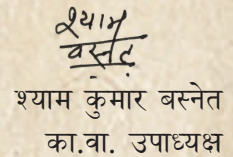 श्याम
वस्नेत
श्याम कुमार बस्नेत
का.वा. उपाध्यक्ष